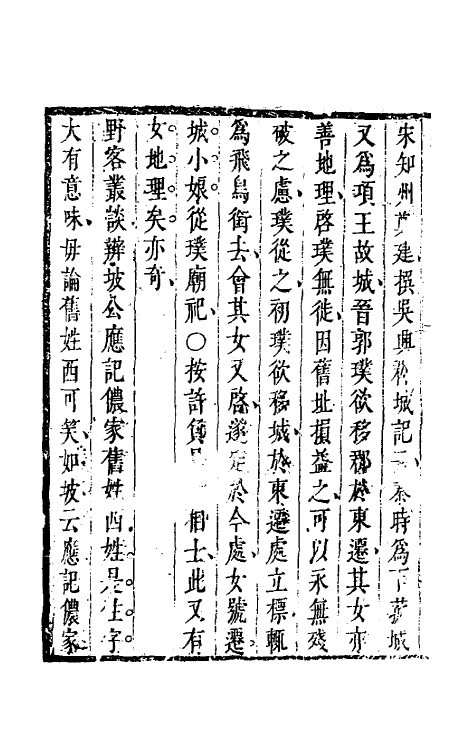 宋知州 建撰吳興 城記云秦時爲下菰城
又爲項王故城晉郭璞欲移郡於東遷其女亦
善地理啓璞無徙因舊址損益之可以永無殘
破之慮璞從之初璞欲移城於東遷處立標輒
爲飛鳥銜去會其女又啓遂定於今處女號遷
城小娘從璞廟祀○按許負 相士此又有
女地理矣亦奇
野客叢談辨坡公應記儂家舊姓西姓是住字
大有意味毋論舊姓西可笑如坡云應記儂家